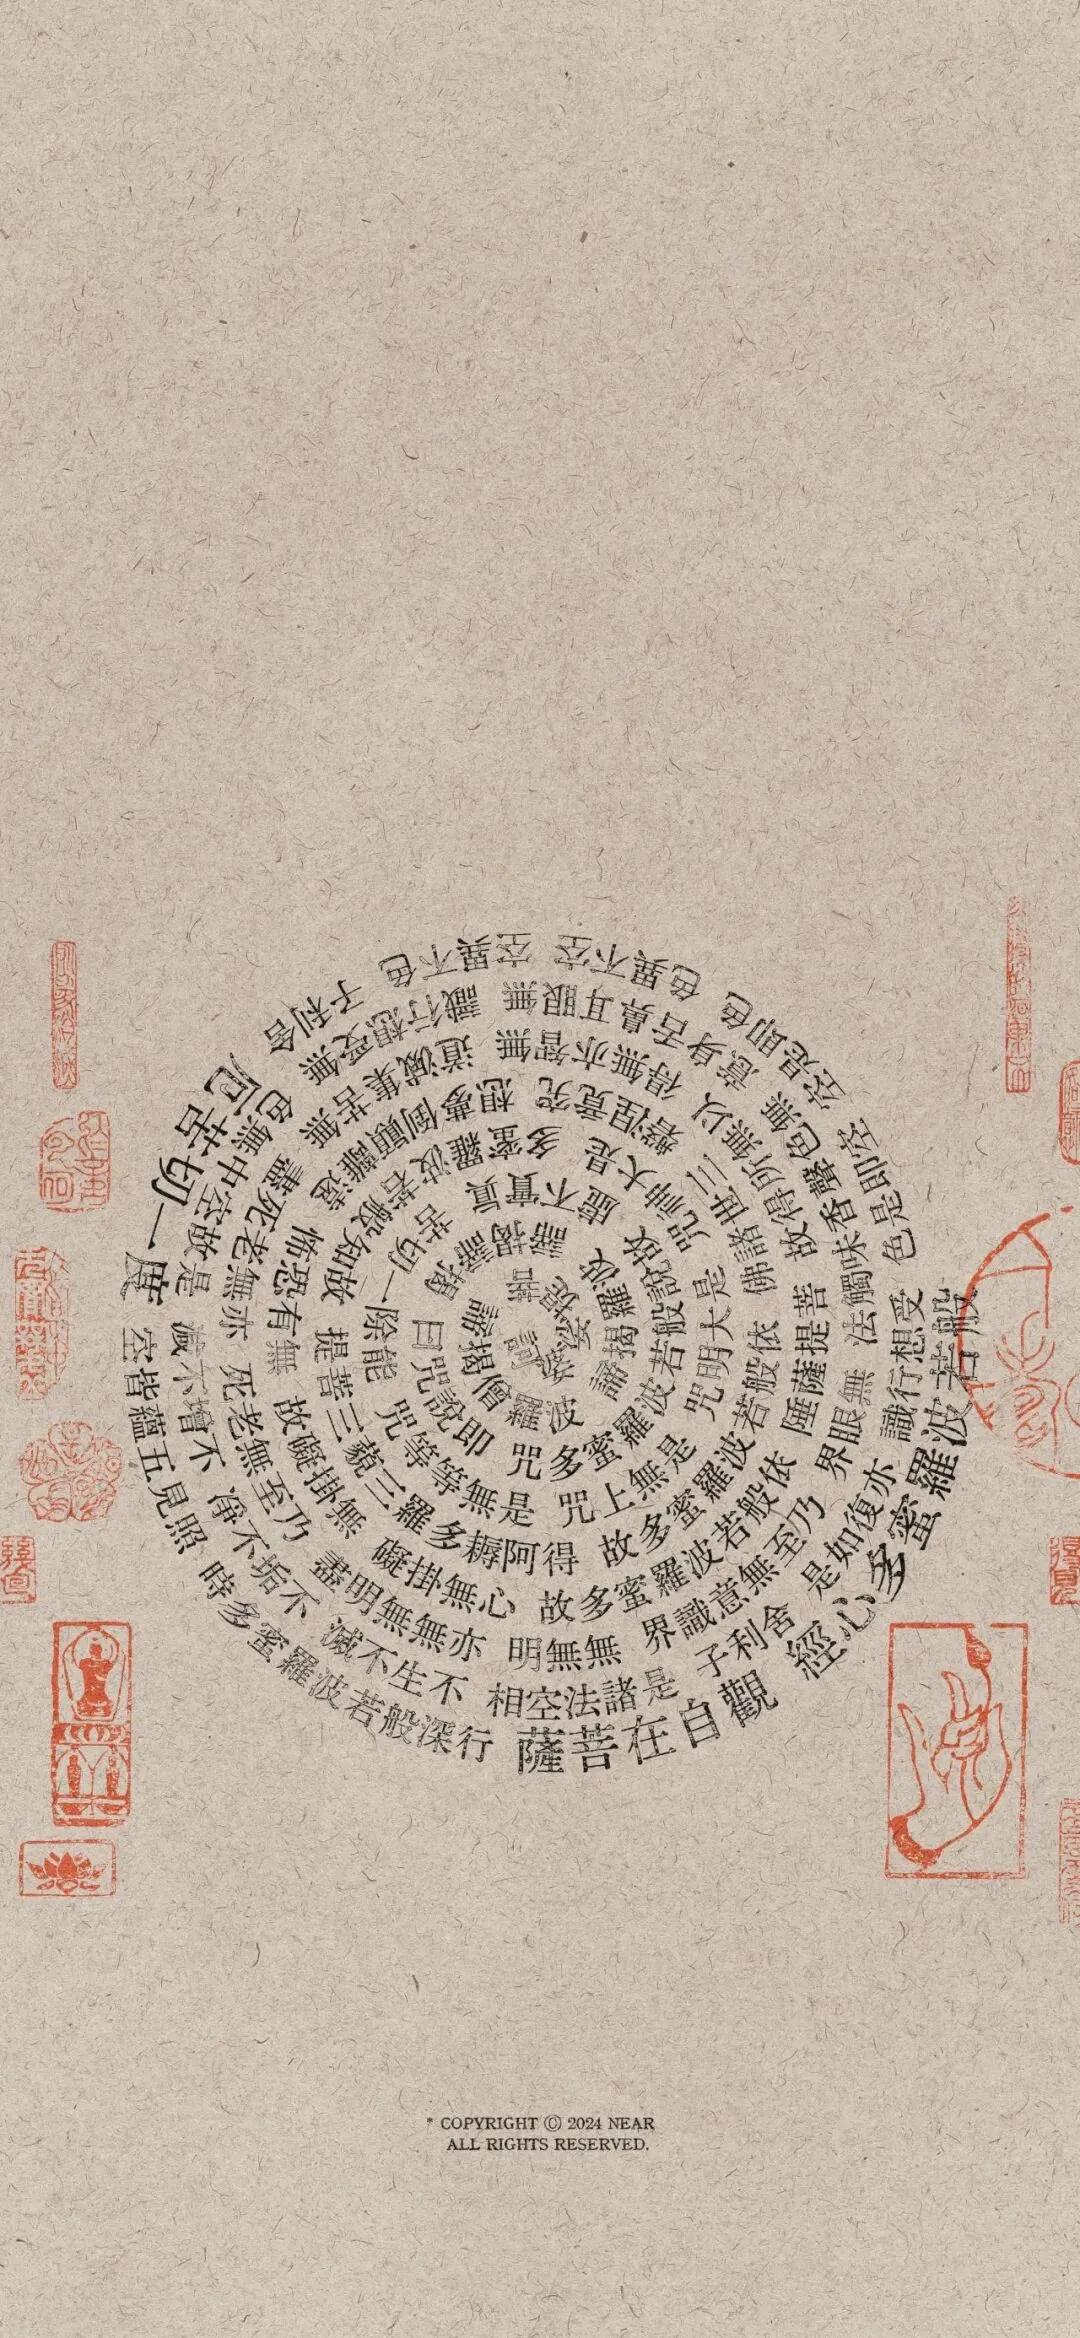 般若波羅蜜多心經
觀自在菩薩
行深般若波羅蜜多時
照見五蘊皆空
度一切苦厄
舍利子
色不異空
空不異色
色即是空
空即是色
受想行識
亦復如是
舍利子
是諸法空相
不生不滅
不垢不淨
不增不減
是故空中無色
無受想行識
無眼耳鼻舌身意
無色聲香味觸法
無眼界
乃至無意識界
無無明
亦無無明盡
乃至無老死
亦無老死盡
無苦集滅道
無智亦無得
以無所得故
菩提薩陲
依般若波羅蜜多故
心無掛礙
無掛礙故
無有恐怖
遠離顛倒夢想
究竟涅槃
三世諸佛
依般若波羅蜜多故
得阿耨多羅三藐三菩提
故知般若波羅蜜多
是大神咒
是大明咒
是無上咒
是無等等咒
能除一切苦
眞實不虛
故說般若波羅蜜多咒
即說咒曰
揭諦揭諦
波羅揭諦
波羅僧揭諦
菩提薩婆訶
* COPYRIGHT Ⓒ 2024 NEAR
ALL RIGHTS RESERVED.